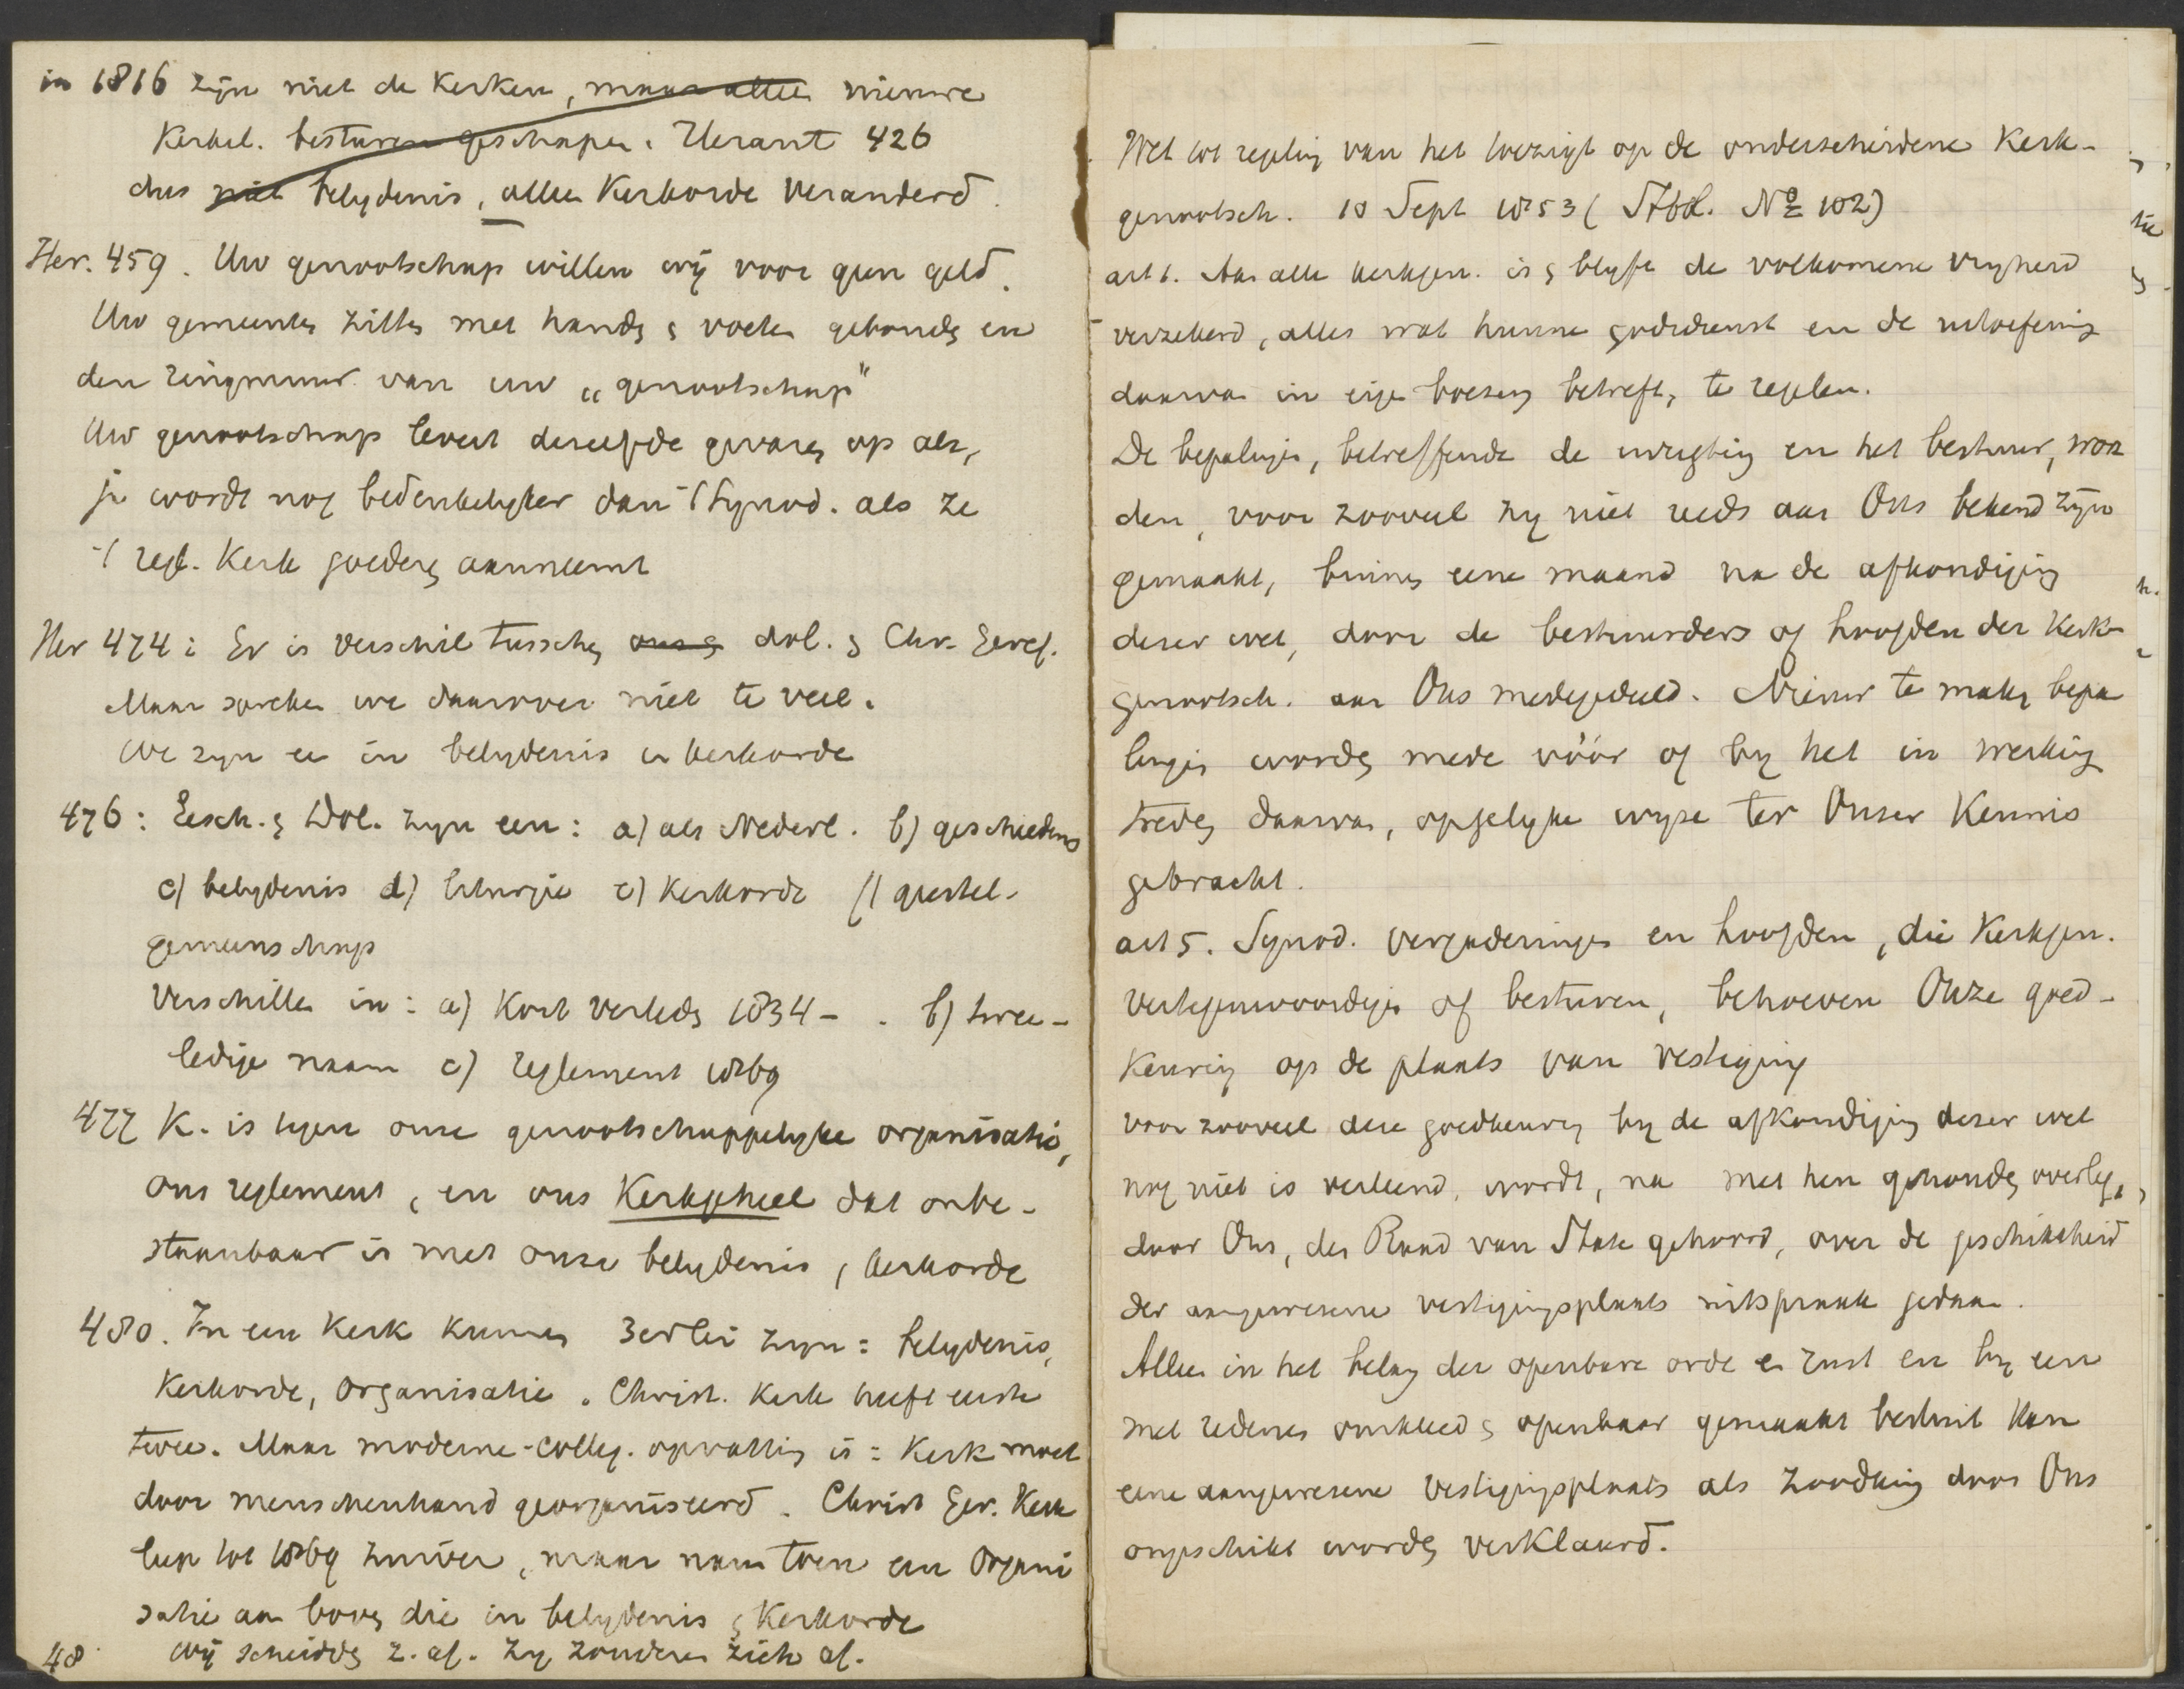 in 1816 zijn niet de Kerken, maar allee nieuwe
Kerkel. besturen geschapen. Verant 426
dus niet belydenis, allee Kerkorde veranderd.
Her. 459. Uw genootschap willen wij voor geen geld.
Uw gemeentes zittes met handes & voeten gebondes en
den ringmuur van uw „genootschap"
Uw genootschap levert dereelfde gevares op als,
ja wordt nog bedenkelyker dan Synod. als ze
regl. Kerk goederes aanneemt
Her 474: Er is verschil tussches ons & dol. & Chr. Geref.
Maar spreken we daarover niet te veel.
We zyn ee in belydenis en kerkorde
476: Gesch. & Dol. zyn een: a) als Nederl. b) geschiedenis
c) belydenis d) liturgie e) Kerkorde f) geestel-
gemeenschap
verschille in: a) Kort verledes 1834 - . b) twee-
ledige naam c) reglement 1869
477 K. is tegen onze genootschappelyke organisatie,
ons reglement, en ons Kerkgeheel dat onbe-
staanbaar is met onze belydenis, kerkorde
480. In een Kerk kunnes 3erlei zyn: belydenis,
Kerkorde, organisatie. Christ. Kerk heeft eerste
twee. Maar moderne-colleg. opvattig is: Kerk moet
door menschenhand georganiseerd. Christ Ger. Kerk
liep tot 1869 zuiver, maar nam toen een Organi
satie aa boves die in belydenis & Kerkorde
48 Wij scheiddes z. af. Zy zonderen zich af.
Wet tot regelig van het toezigt op de onderscheidene Kerk-
genootsch. 10 Sept 1853 (Stbl. No 102)
art 1. Aan alle kerkgen. is & blyft de volkomene vryheid
verzekerd, alles wat hunne godsdienst en de uitoefenig
daarvan in eige boezem betreft, te regelen.
De bepalinge, betreffende de inrigtig en het bestuur, wor
den, voor zooveel zy niet reeds aan Ons bekend zijn
gemaakt, binnes eene maand na de afkondiging
dezer wet, door de bestuurders of hoofden der Kerk-
genootsch. aan Ons medegedeeld. Nieuw te makes bepa
linges wordes mede vóór of by het in werking
tredes daarvan, op gelyke wyze ter Onzer Kennis
gebracht.
art 5. Synod. vergaderinges en hoofden, die Kerkgen.
vertegenwoordiges of besturen, behoeven Onze goed-
keurig op de plaats van vestiging
voor zooveel deze goedkeurig by de afkondiging dezer wet
nog niet is verleend, wordt, na met hen gehoudes overleg,
door Ons, den Raad van State gehoord, over de geschiktheid
der aangewezene vestigingsplaats uitspraak gedaan.
Allee in het belag der openbare orde en rust en by een
met redenes omkleed & openbaar gemaakt besluit kan
eene aangewezene vestigingsplaats als zoodanig door Ons
ongeschikt wordes verklaard.